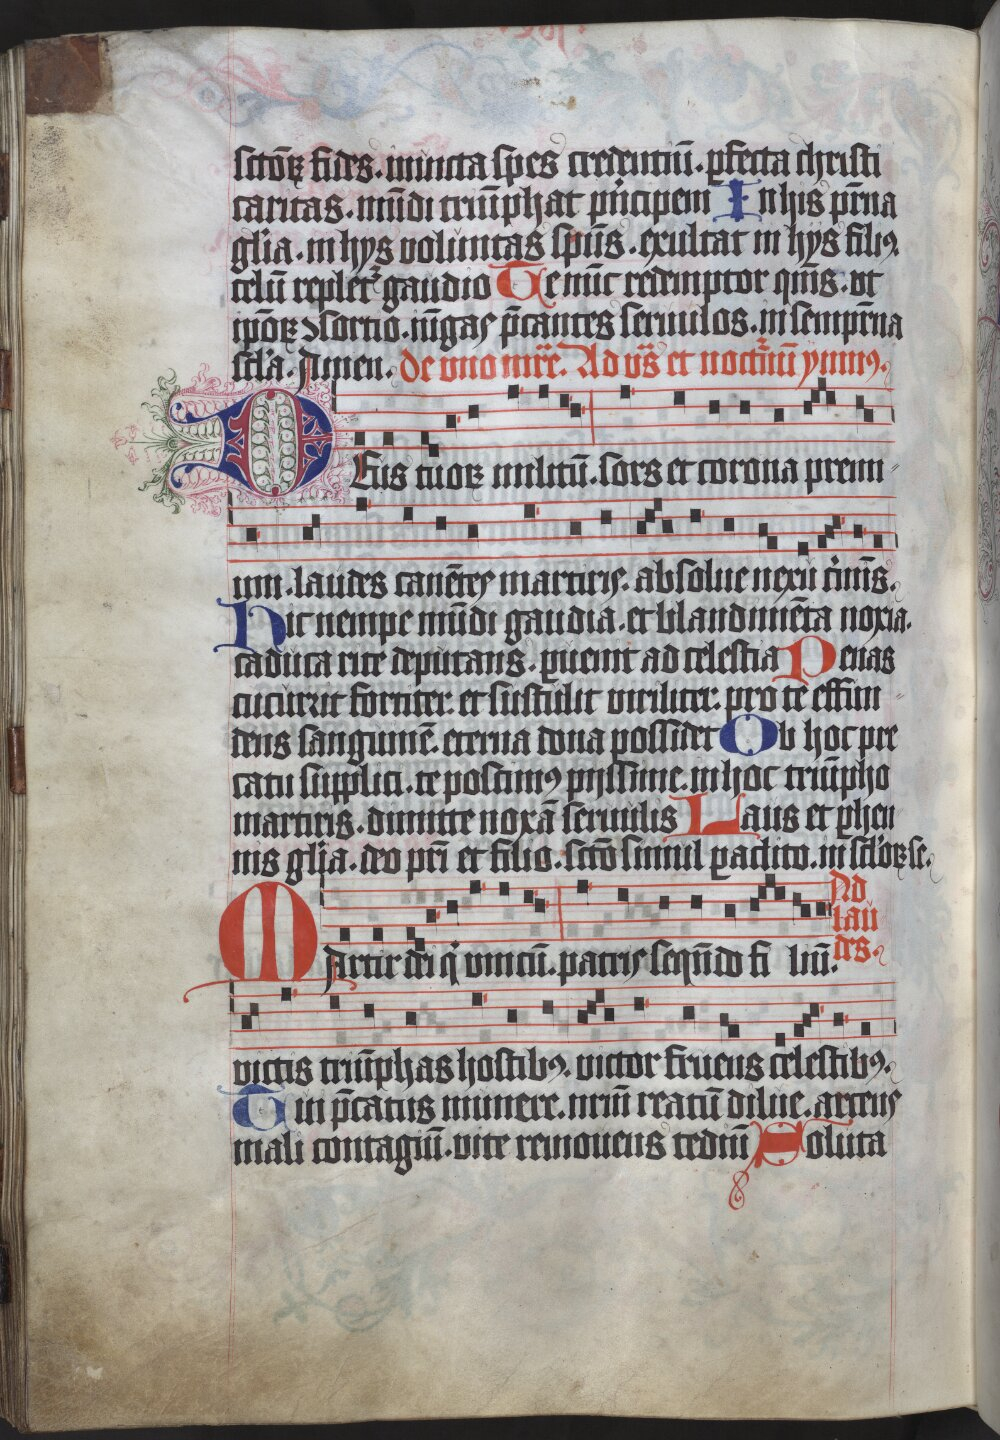 sctōꝝ fides. inuicta spes credentiū. ꝑfecta christi
caritas. mūdi triūphat pͥncipem In his pr̄na
gl̄ia. in hys voluntas spūs. exultat in hys filiꝰ
celū repletᷣ gaudio Te nūc redemptor qm̄s. vt
ip̄oꝝ ↄsortio. iūgas p̄cantes seruulos. in sempit̄na
sc̄la. Amen. De vno mr̄e. Ad vs̄ et noctͥnū ymnꝰ.
DEus tuoꝝ militū. sors et corona premi
um. laudes canētes martiris. absolue nexu cͥmīs.
Hic nempe mūdi gaudia. et blandimēta noxia.
caduca rite deputans. ꝑuenit ad celestia Penas
cucurrit fortiter. et sustulit viriliter. pro te effun
dens sanguinē. eterna dona possidet Ob hoc pre
catu supplici. te poscimꝰ pijssime. in hoc triūpho
martiris. dimitte noxā seruulis Laus et ꝑhen
nis gl̄ia. deo pr̄i et filio. sctō simul ꝑaclito. in sc̄loꝝ sc̄
Ad
lau
des.
MArtir dei qͥ vnicū. patris sequēdo fi liū.
victis triūphas hostibꝰ. victor fruens celestibꝰ.
Tui p̄catus munere. nr̄m reatū dilue. arcens
mali contagiū. vite remouens tediū Soluta